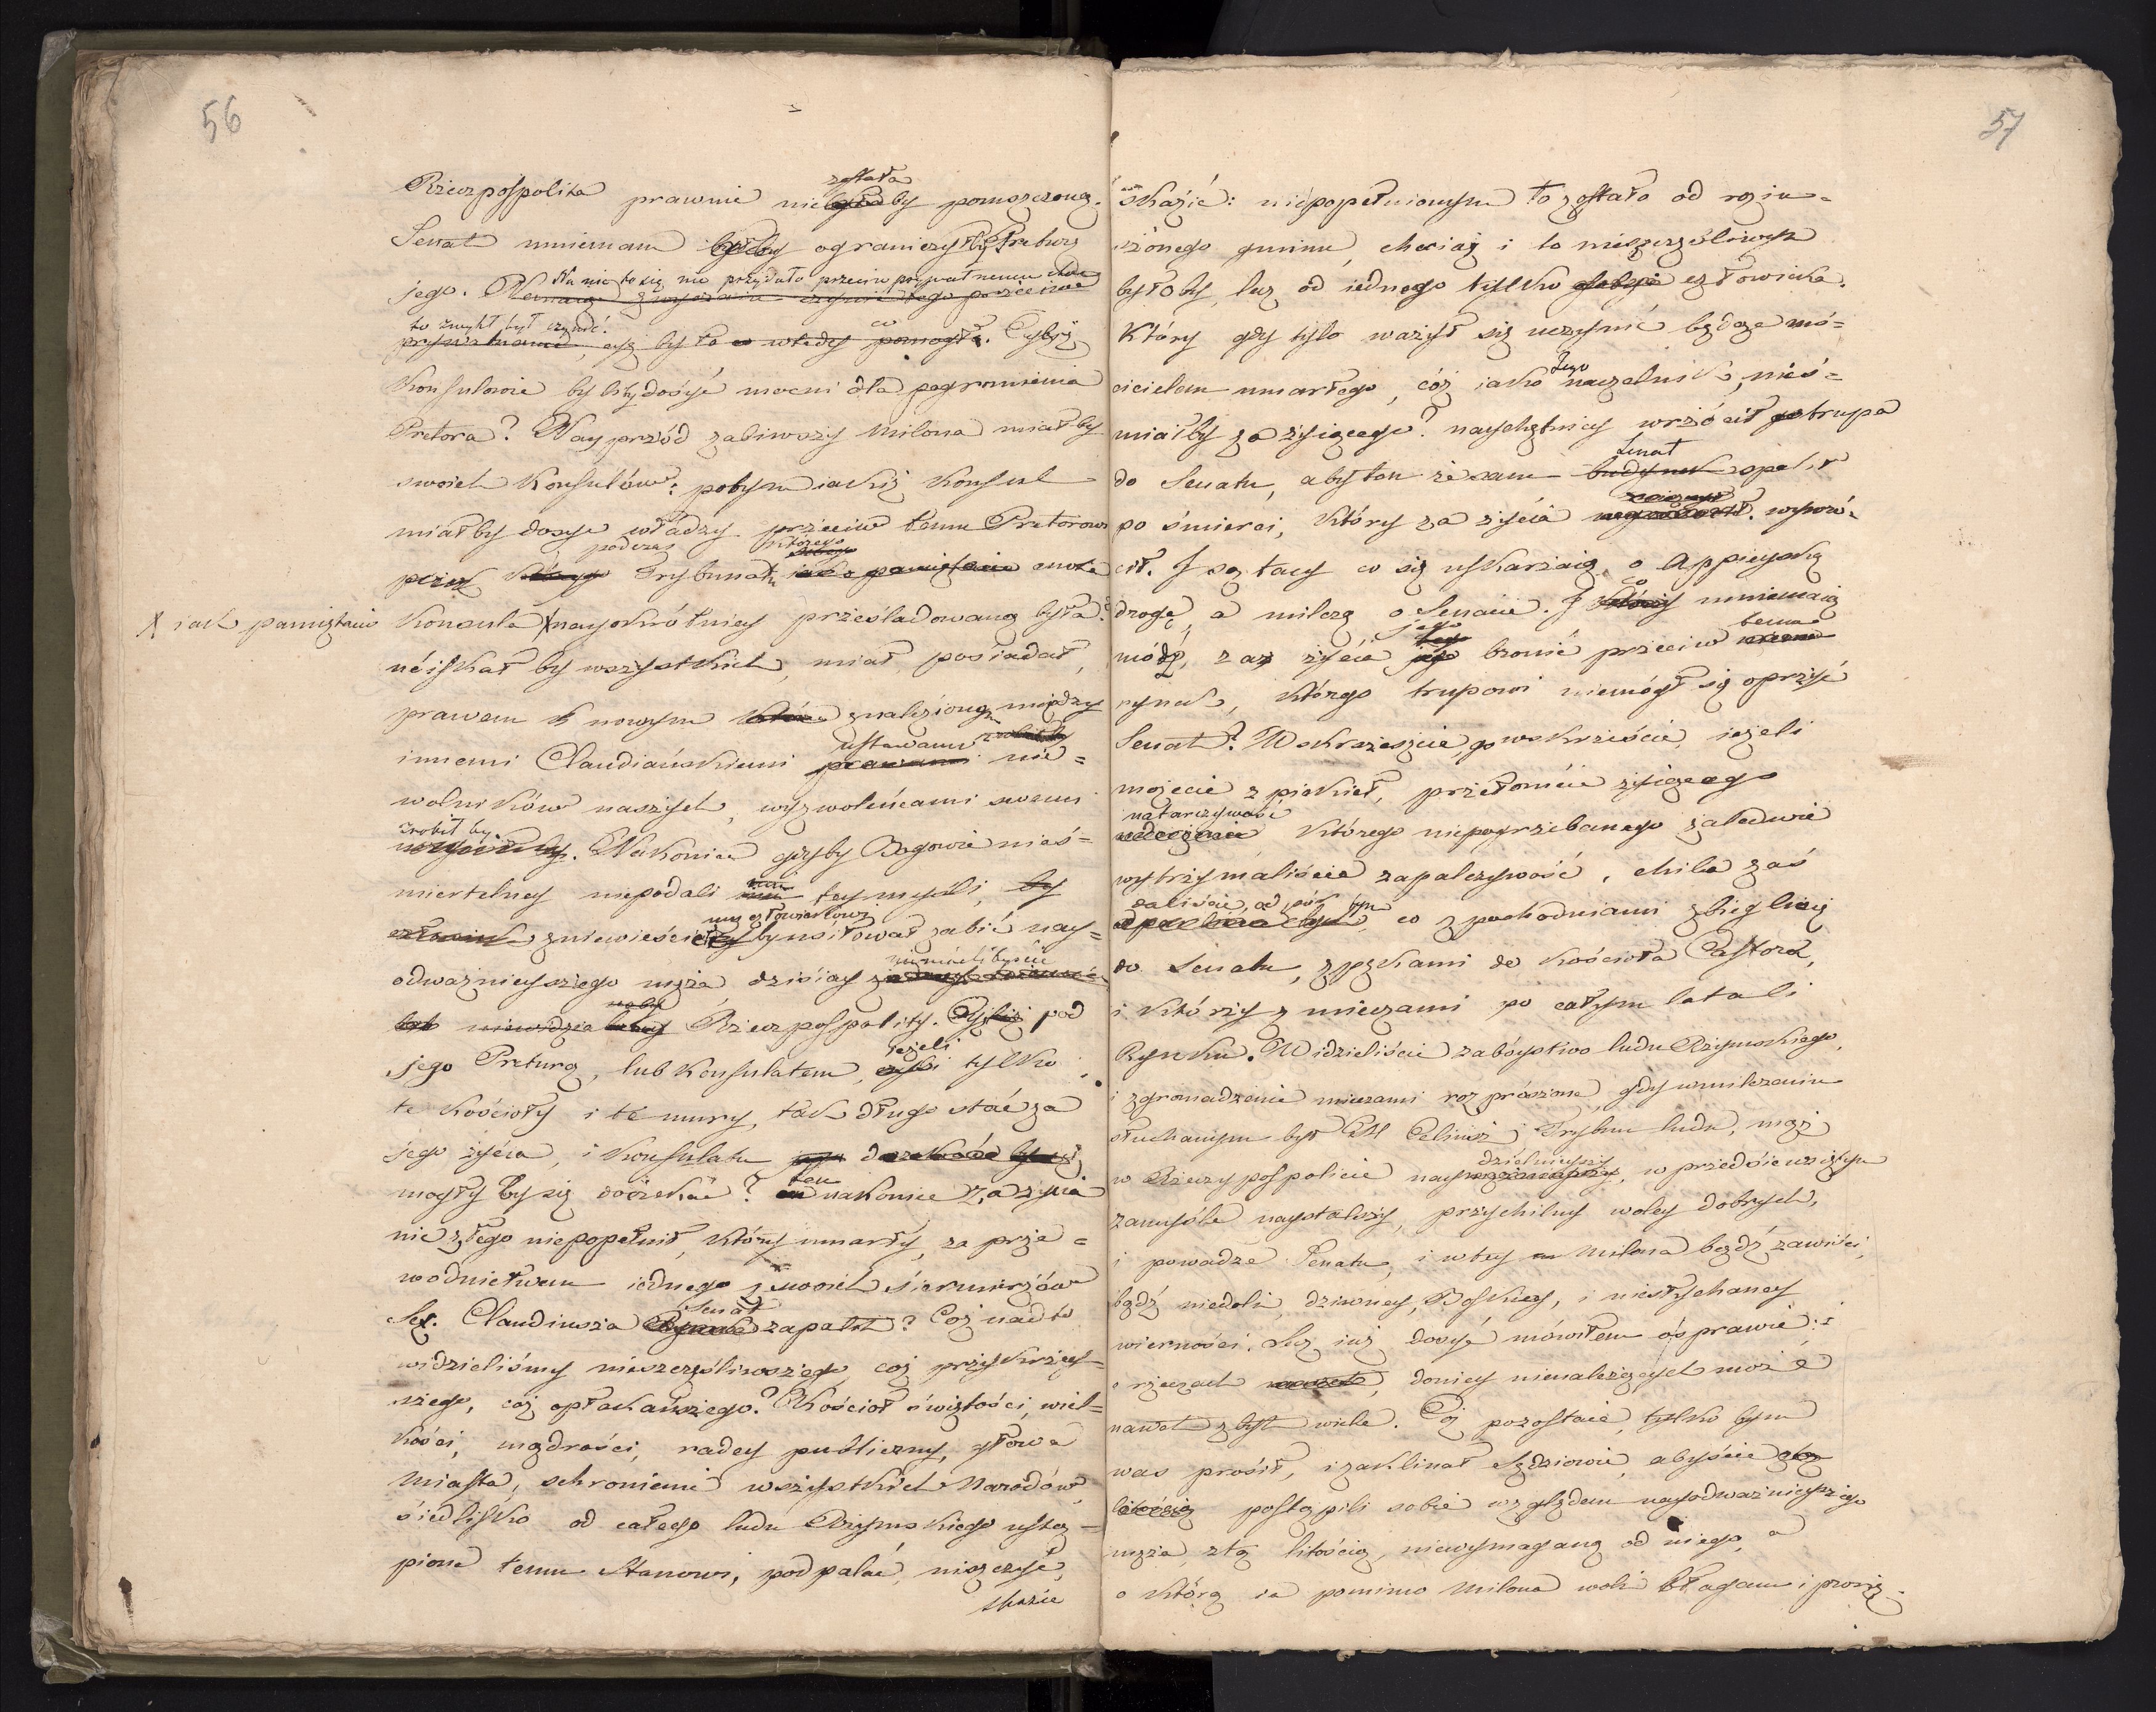 56
Rzeczpospolita prawnie nie została by pomszczoną.
Senat mniemam byłby ograniczyłby Preturę
jego. Na nic to się nie przydało przeciw prywatnemu
to zwykł był czynić. czyż by to w wtedy co pomogło. Czyby
Konsulowie byliby dosyć mocni dla pogromienia
Pretora? Nayprzód zabiwszy Milona miałby
swoich Konsulów: potym iakiż Konsul
miałby dosyć władzy przeciw temu Pretorowi
przez podczas którego Trybunatu cnota
X iak pamiętacie
Konsula X nayokrótniey prześladowaną była?
uciskał by wszystkich, miał, posiadał,
prawem nowym znalezioną między
innemi Claudiańskiemi ustawami nie=
wolników naszych, wyzwoleńcami swemi
zrobił by. Nakoniec gdyby Bogowie nieś=
miertelney niepodali mu tey myśli, by
mu człowiekowi zniewieściałemu by usiłował zabić nay=
odważnieyszego męża dzisiay niemielibyście
Rzeczpospolity. Czyliż pod
jego Preturą, lub Konsulatem, jeżeli tylko
te kościoły i te mury, tak długo stać za
jego życia, i Konsulatu
mogły by się doczekać? ten nakoniec za życia
nic złego niepopełnił, który umarły, za prze=
wodnictwem iednego z swoich siermierzów
Sex. Claudiusza Senat zapalił? Cóż nadto
widzieliśmy nieszczęśliwszego, coż przykrzey=
szego, coż opłakańszego? Kościół świętości, wiel=
kości, mądrości, radey publiczny, głowa
Miasta, schronienie wszystkich Narodów,
siedlisko od całego ludu Rzymskiego ustą=
pione temu Stanowi, podpalać, niszczyć,
skazić
57
skazić: niepopełnionym to zostało od rozju=
szonego gminu, chociaż i to nieszczęśliwym
byłoby, lecz od iednego tylko człowieka.
Który gdy tyle ważył się uczynić będąc mó=
cicielem umarłego, cóż iako Jego naczelnik, nieś=
miałby za żyiącego? naychętniey wrzócił trupa
do Senatu, aby ten że sam Senat opalił
po śmierci, który za życia wywró=
cił. I są tacy co się uskarżaią, o Appieyską
drogę, a milczą o Senacie. I co mniemaią
módz, zaż życie jego bronić przeciw temu
rynek, którego trupowi niemógł się oprzyć
Senat? Wskrzeszcie, go wskrzeście, ieżeli
możecie z piekieł, przełomcie żyiącego
natarczywość którego niepogrzebanego zaledwie
wytrzymaliście zapalczywość, chiba zaś
daliście, od pór tym co z pochodniami zbiegli się
do Senatu, z pękami do kościoła Castora,
i którzy z mieczami po całym latali
Rynku. Widzieliście zabóystwo ludu Rzymskiego,
i zgromadzenie mieczami rozproszone, gdy w milczeniu
słuchanym był M Celiusz, Trybun ludu, mąż
w Rzeczypospolicie naydzielnieyszy, w przedsiewziętym
zamyśle naystalszy, przychilny woley dobrych,
i powadze Senatu, i w tey Milona bądź zawiści,
bądź niedoli, dziwney, Boskiey, i niesłychaney
wierności. Lecz iuż dosyć mówiłem o sprawie: i
o rzeczach doniey nienależących może
nawet zbyt wiele. Coż pozostaie, tylko bym
was prosił, i zaklinał Sędziowie, abyście
litością postąpili sobie względem nayodważnieyszego
męża, z tą litością, niewymaganą od niego, a
o którą ia pomimo Milona woli błagam i proszę.